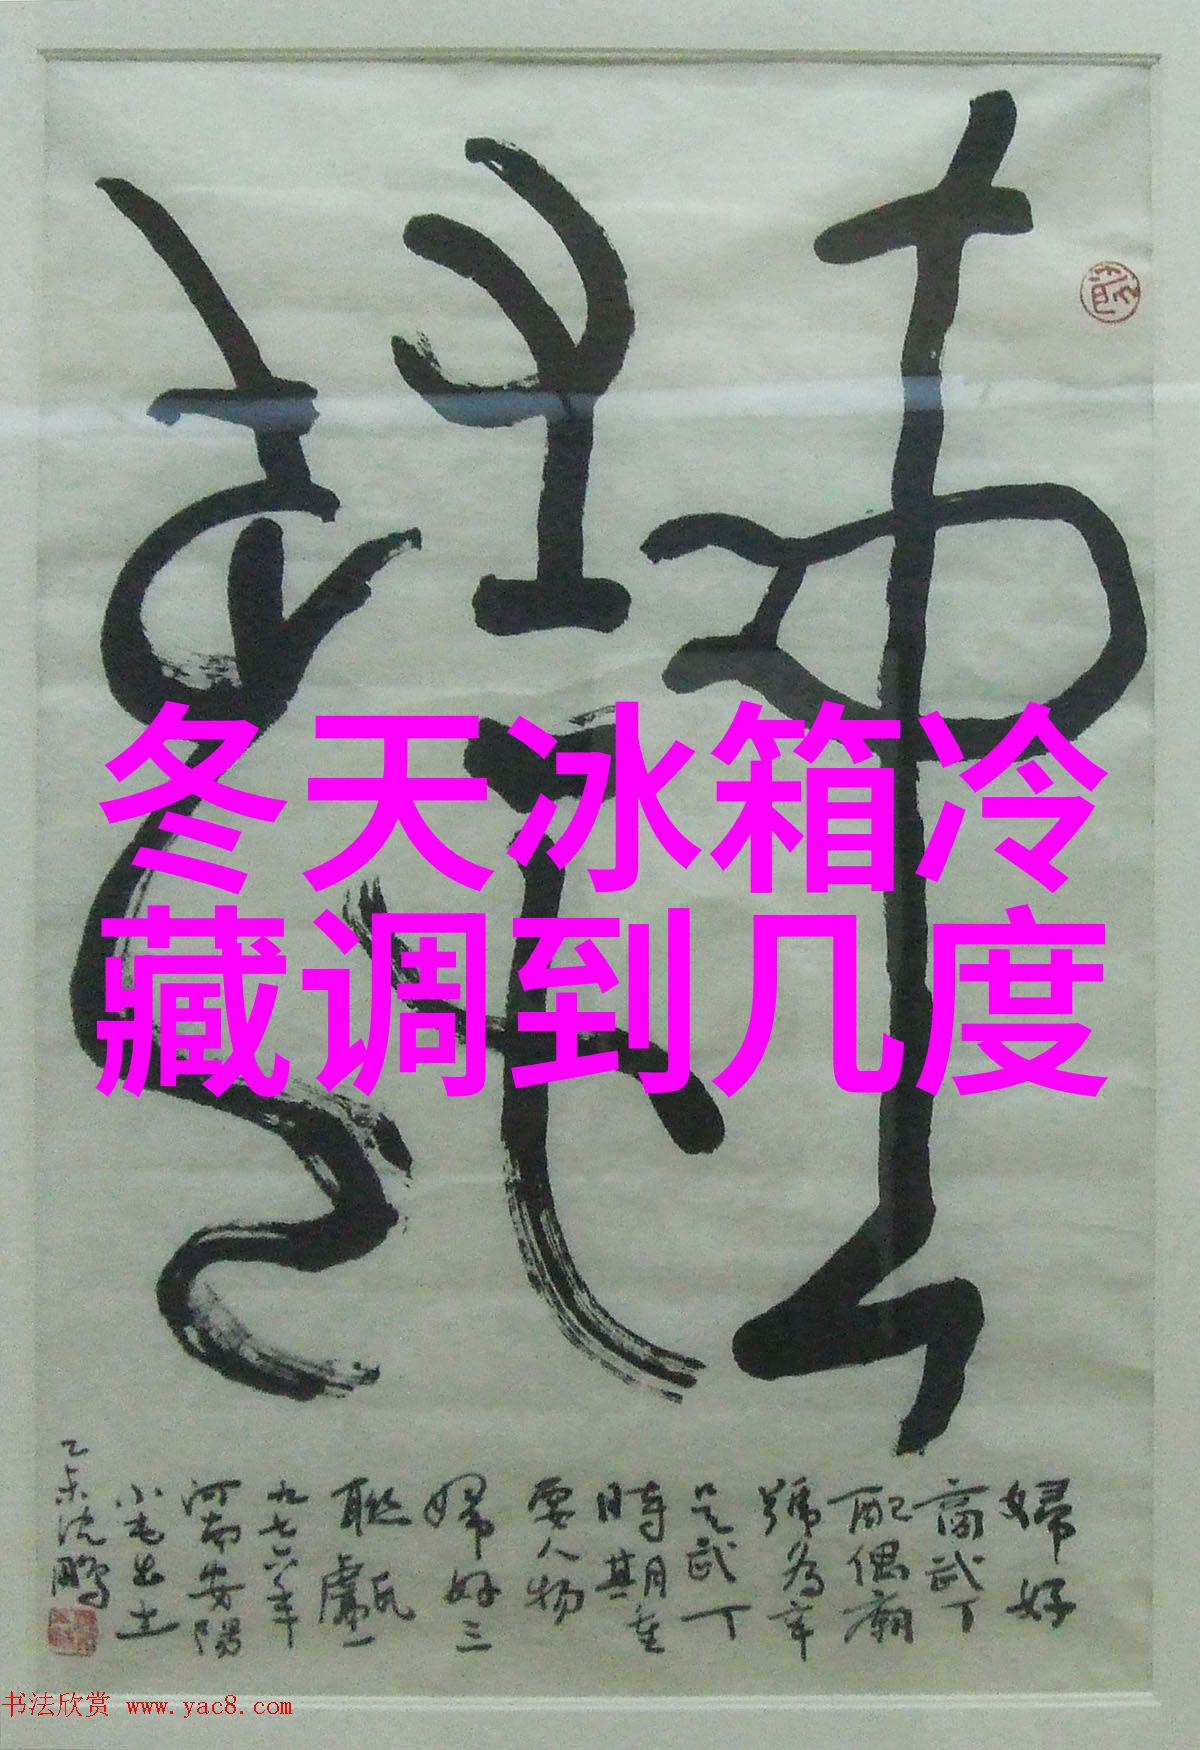 冬天冰箱冷
藏调到几度
婦好
商武丁
配偶廟
號為辛
是武丁
時期重
要人物
婦好三
聯甗一
九七六年
河南安陽
小屯出土
乙未沈鵬
书法欣赏 www.yac8.com